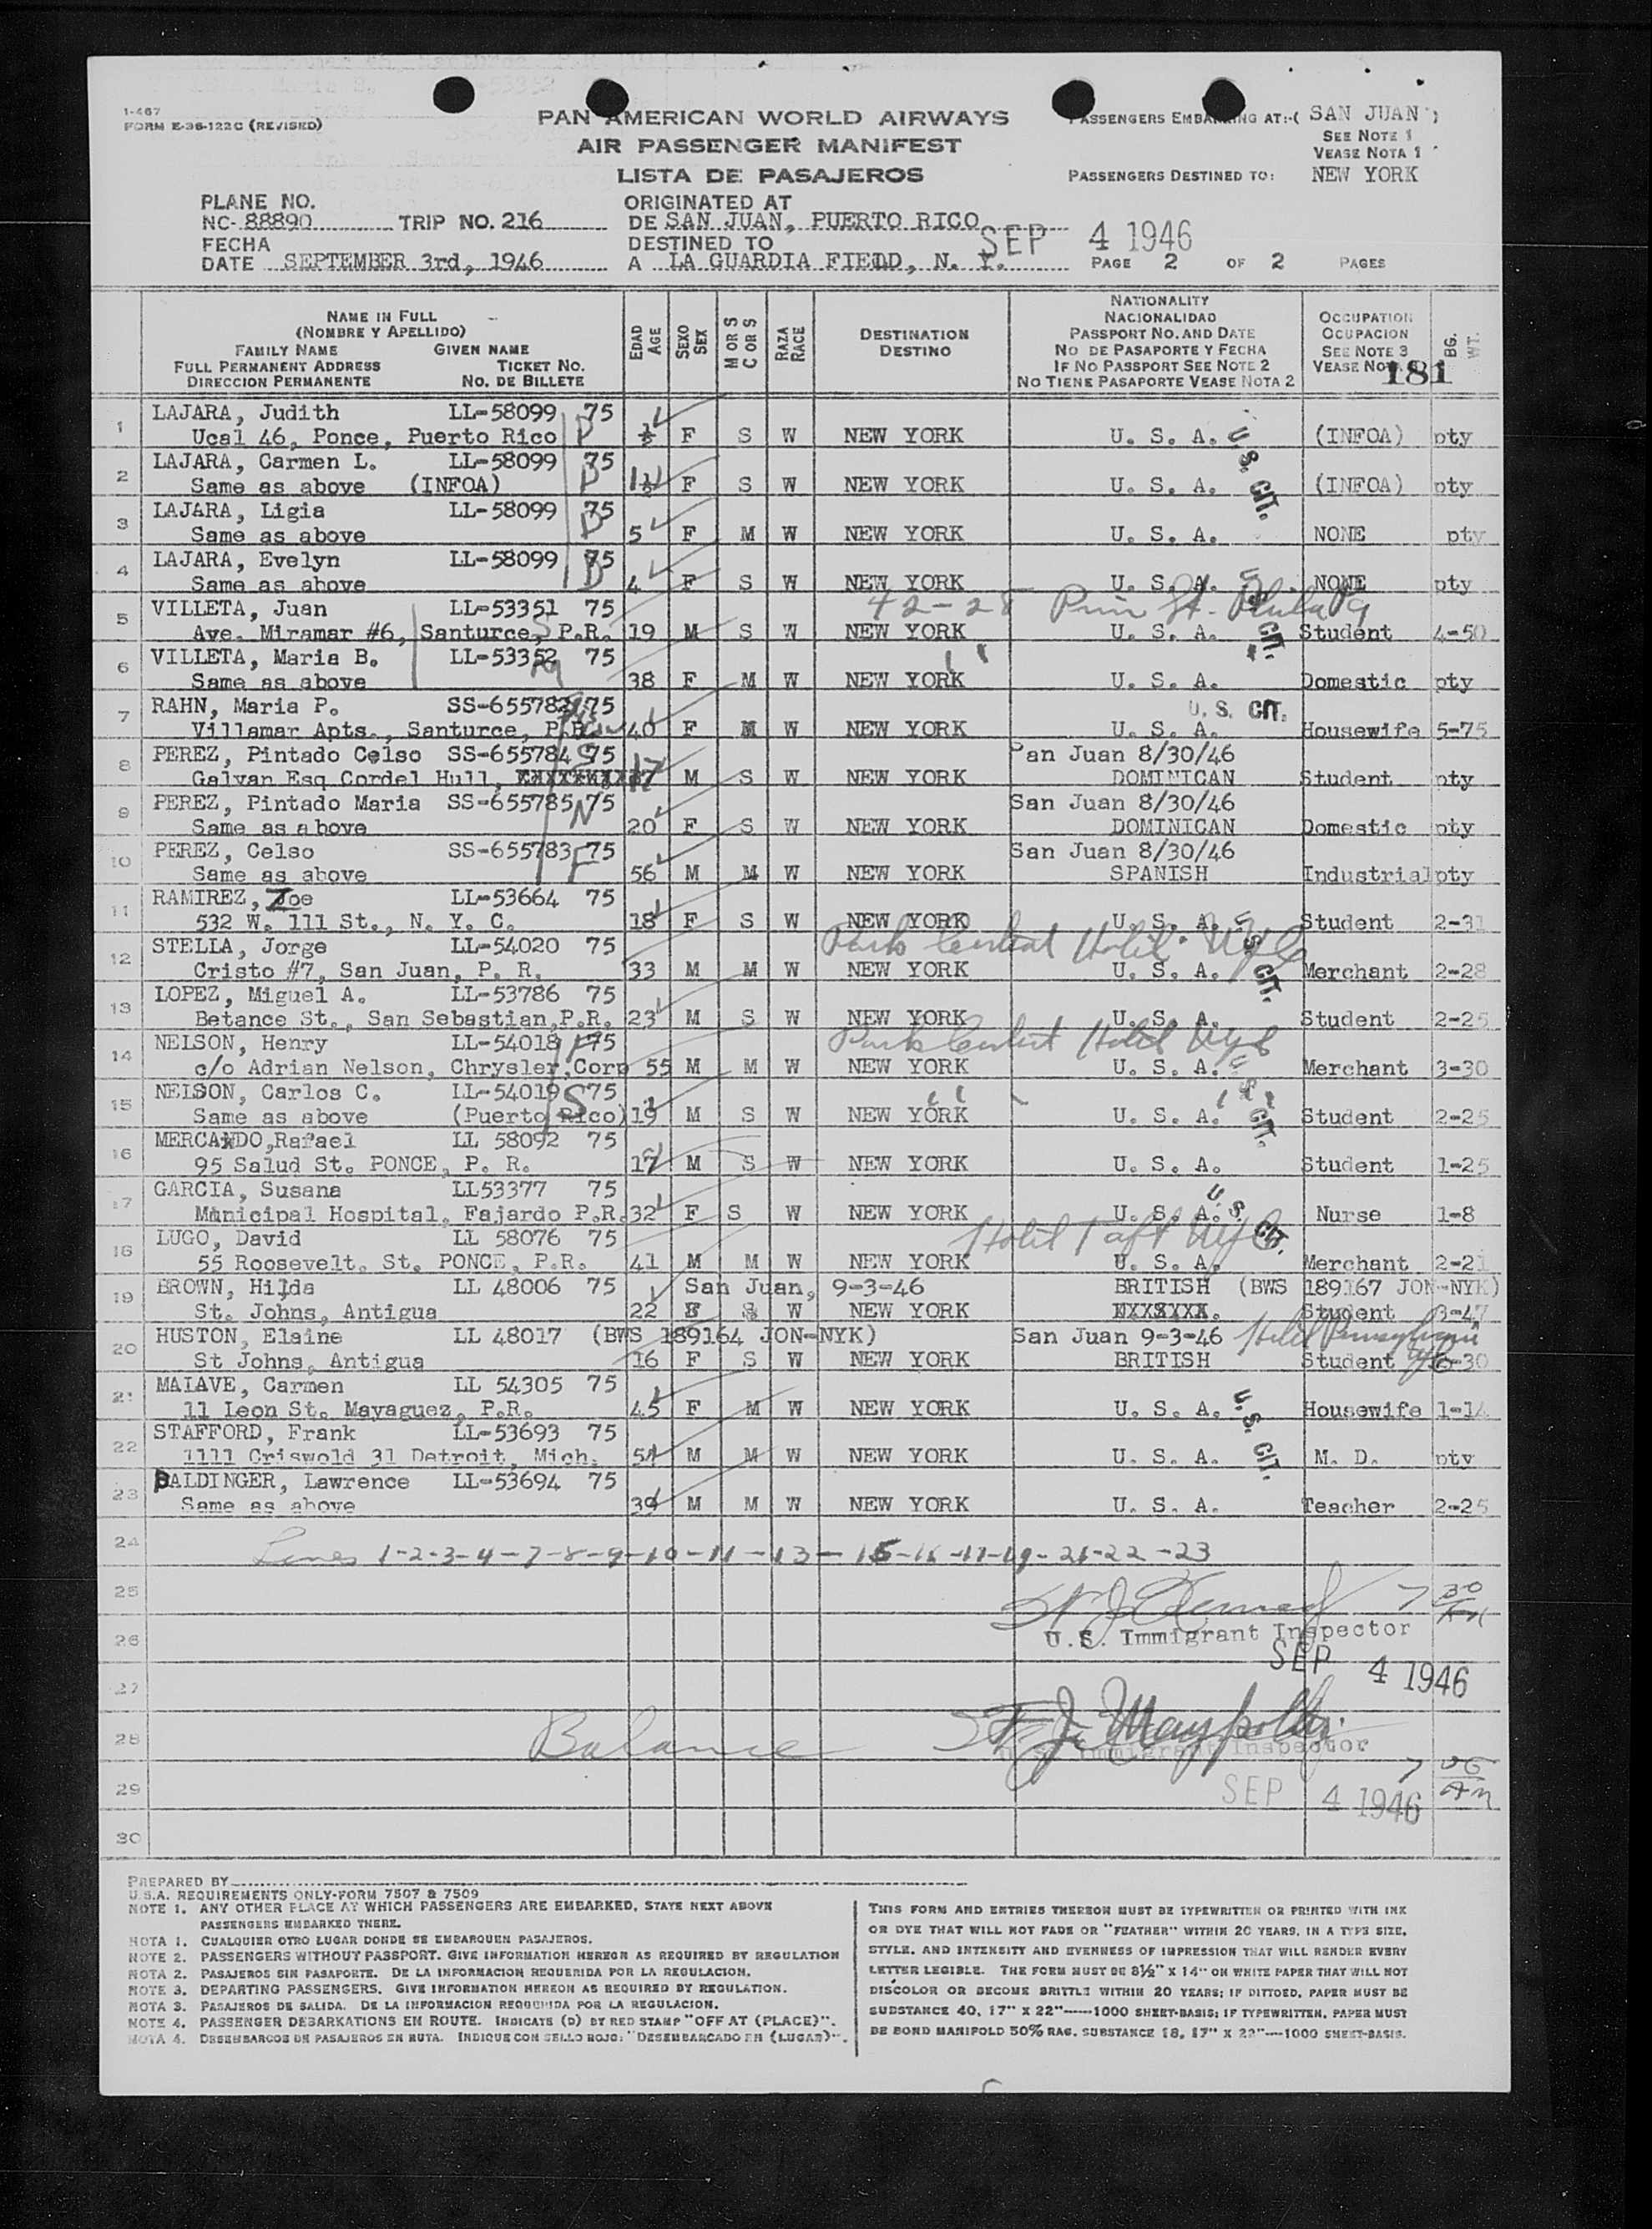 1-467
FORM E-36-122C (REVISED)
PAN AMERICAN WORLD AIRWAYS
AIR PASSENGER MANIFEST
LISTA DE PASAJEROS
PASSENGERS EMBARKING AT:-( SAN JUAN )
SEE NOTE 1
VEASE NOTA 1
PASSENGERS DESTINED TO: NEW YORK
PLANE NO.
NC- 88890 TRIP NO. 216
ORIGINATED AT
DE SAN JUAN, PUERTO RICO
SEP 4 1946
FECHA
DATE SEPTEMBER 3rd, 1946
DESTINED TO
A LA GUARDIA FIELD, N. Y.
PAGE 2 OF 2 PAGES
NAME IN FULL
(NOMBRE Y APELLIDO)
FAMILY NAME GIVEN NAME
FULL PERMANENT ADDRESS TICKET NO.
DIRECCION PERMANENTE NO. DE BILLETE
EDAD AGE
SEXO SEX
M OR S C OR S
RAZA RACE
DESTINATION
DESTINO
NATIONALITY
NACIONALIDAD
PASSPORT NO. AND DATE
NO DE PASAPORTE Y FECHA
IF NO PASSPORT SEE NOTE 2
NO TIENE PASAPORTE VEASE NOTA 2
OCCUPATION
OCUPACION
SEE NOTE 3
VEASE NO
181
BG. WT.
1 LAJARA, Judith LL-58099 75
Ucal 46, Ponce, Puerto Rico F S W NEW YORK U. S. A. (INFOA) pty
U. S. CIT.
2 LAJARA, Carmen L. LL-58099 75
Same as above (INFOA) F S W NEW YORK U. S. A. (INFOA) pty
3 LAJARA, Ligia LL-58099 75
Same as above 5 F M W NEW YORK U. S. A. NONE pty
4 LAJARA, Evelyn LL-58099 75
Same as above 4 F S W NEW YORK U. S. A. NONE pty
5 VILLETA, Juan LL-53351 75 42-28 St. Phila Pa
Ave. Miramar #6, Santurce, P.R. 19 M S W NEW YORK U. S. A. Student 4-50
6 VILLETA, Maria B. LL-53352 75
Same as above 38 F M W NEW YORK U. S. A. Domestic pty
7 RAHN, Maria P. SS-655782 75 U. S. CIT.
Villamar Apts., Santurce, P.R. 40 F M W NEW YORK U. S. A. Housewife 5-75
8 PEREZ, Pintado Celso SS-655784 75 San Juan 8/30/46
Galvan Esq Cordel Hull, 17 M S W NEW YORK DOMINICAN Student pty
9 PEREZ, Pintado Maria SS-655785 75 San Juan 8/30/46
Same as above 20 F S W NEW YORK DOMINICAN Domestic pty
10 PEREZ, Celso SS-655783 75 San Juan 8/30/46
Same as above 56 M M W NEW YORK SPANISH Industrial pty
11 RAMIREZ, Zoe LL-53664 75
532 W. 111 St., N. Y. C. 18 F S W NEW YORK U. S. A. Student 2-31
12 STELLA, Jorge LL-54020 75 Park Central Hotel NYC
Cristo #7, San Juan, P. R. 33 M M W NEW YORK U. S. A. Merchant 2-28
13 LOPEZ, Miguel A. LL-53786 75
Betance St., San Sebastian, P.R. 23 M S W NEW YORK U. S. A. Student 2-25
14 NELSON, Henry LL-54018 75 Park Central Hotel NYC
c/o Adrian Nelson, Chrysler Corp 55 M M W NEW YORK U. S. A. Merchant 3-30
15 NELSON, Carlos C. LL-54019 75
Same as above (Puerto Rico) 19 M S W NEW YORK U. S. A. Student 2-25
16 MERCADO, Rafael LL 58092 75
95 Salud St. PONCE, P. R. 17 M S W NEW YORK U. S. A. Student 1-25
17 GARCIA, Susana LL53377 75
Municipal Hospital, Fajardo P.R. 32 F S W NEW YORK U. S. A. Nurse 1-8
18 LUGO, David LL 58076 75 Hotel Taft NYC
55 Roosevelt. St. PONCE, P.R. 41 M M W NEW YORK U. S. A. Merchant 2-21
19 BROWN, Hilda LL 48006 75 San Juan, 9-3-46 BRITISH (BWS 189167 JON-NYK)
St. Johns, Antigua 22 F S W NEW YORK Student 3-47
20 HUSTON, Elaine LL 48017 (BWS 189164 JON-NYK) San Juan 9-3-46 Hotel Pennsylvania
St Johns, Antigua 16 F S W NEW YORK BRITISH Student -30
21 MALAVE, Carmen LL 54305 75
11 Leon St. Mayaguez, P.R. 45 F M W NEW YORK U. S. A. Housewife 1-14
22 STAFFORD, Frank LL-53693 75
1111 Griswold 31 Detroit, Mich. 54 M M W NEW YORK U. S. A. M. D. pty
23 BALDINGER, Lawrence LL-53694 75
Same as above 39 M M W NEW YORK U. S. A. Teacher 2-25
24 Lines 1-2-3-4-7-8-9-10-11-13-15-16-17-19-21-22-23
25
7 30
26 U.S. Immigrant Inspector
SEP 4 1946
27
28 Balance
U.S. Immigrant Inspector
29 SEP 4 1946
30
PREPARED BY
U.S.A. REQUIREMENTS ONLY-FORM 7507 & 7509
NOTE 1. ANY OTHER PLACE AT WHICH PASSENGERS ARE EMBARKED, STATE NEXT ABOVE
PASSENGERS EMBARKED THERE.
NOTA 1. CUALQUIER OTRO LUGAR DONDE SE EMBARQUEN PASAJEROS.
NOTE 2. PASSENGERS WITHOUT PASSPORT. GIVE INFORMATION HEREON AS REQUIRED BY REGULATION
NOTA 2. PASAJEROS SIN PASAPORTE. DE LA INFORMACION REQUERIDA POR LA REGULACION.
NOTE 3. DEPARTING PASSENGERS. GIVE INFORMATION HEREON AS REQUIRED BY REGULATION.
NOTA 3. PASAJEROS DE SALIDA. DE LA INFORMACION REQUERIDA POR LA REGULACION.
NOTE 4. PASSENGER DEBARKATIONS EN ROUTE. INDICATE (D) BY RED STAMP "OFF AT (PLACE)".
NOTA 4. DESEMBARCOS DE PASAJEROS EN RUTA. INDIQUE CON SELLO ROJO: "DESEMBARCADO EN (LUGAR)".
THIS FORM AND ENTRIES THEREON MUST BE TYPEWRITTEN OR PRINTED WITH INK
OR DYE THAT WILL NOT FADE OR "FEATHER" WITHIN 20 YEARS, IN A TYPE SIZE,
STYLE, AND INTENSITY AND EVENNESS OF IMPRESSION THAT WILL RENDER EVERY
LETTER LEGIBLE. THE FORM MUST BE 8½" X 14" ON WHITE PAPER THAT WILL NOT
DISCOLOR OR BECOME BRITTLE WITHIN 20 YEARS; IF DITTOED, PAPER MUST BE
SUBSTANCE 40, 17" X 22"-----1000 SHEET-BASIS; IF TYPEWRITTEN, PAPER MUST
BE BOND MANIFOLD 50% RAG, SUBSTANCE 18, 17" X 22"----1000 SHEET-BASIS.